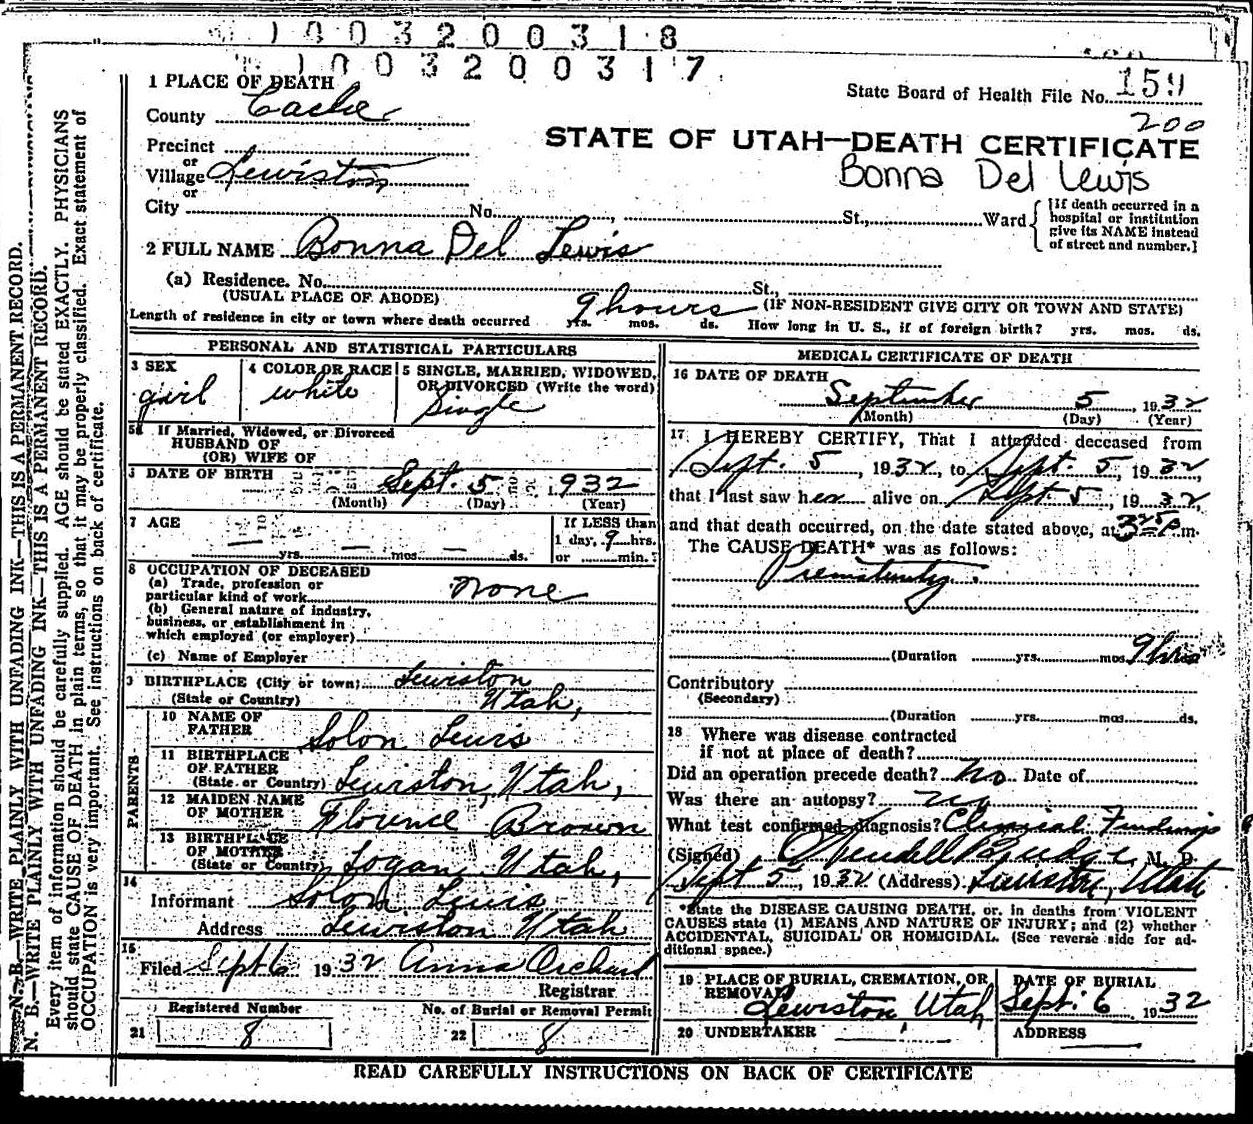 1003200318
1003200317
1 PLACE OF DEATH
State Board of Health File No. 159
County Cache
200
STATE OF UTAH—DEATH CERTIFICATE
Precinct
or
Village Lewiston
Bonna Del Lewis
or
City No. , St., Ward
[If death occurred in a
hospital or institution
give its NAME instead
of street and number.]
2 FULL NAME Bonna Del Lewis
(a) Residence. No. St.,
(USUAL PLACE OF ABODE) (IF NON-RESIDENT GIVE CITY OR TOWN AND STATE)
Length of residence in city or town where death occurred 9 hours yrs. mos. ds. How long in U. S., if of foreign birth? yrs. mos. ds.
PERSONAL AND STATISTICAL PARTICULARS
3 SEX
girl
4 COLOR OR RACE
white
5 SINGLE, MARRIED, WIDOWED,
OR DIVORCED (Write the word)
Single
5a If Married, Widowed, or Divorced
HUSBAND OF
(OR) WIFE OF
DATE OF BIRTH Sept. 5 1932
(Month) (Day) (Year)
7 AGE
— yrs. — mos. — ds.
If LESS than
1 day, 9 hrs.
or min.?
8 OCCUPATION OF DECEASED
(a) Trade, profession or
particular kind of work none
(b) General nature of industry,
business, or establishment in
which employed (or employer)
(c) Name of Employer
9 BIRTHPLACE (City or town) Lewiston
(State or Country) Utah,
PARENTS
10 NAME OF
FATHER Solon Lewis
11 BIRTHPLACE
OF FATHER
(State or Country) Lewiston, Utah,
12 MAIDEN NAME
OF MOTHER Florence Brown
13 BIRTHPLACE
OF MOTHER
(State or Country) Logan, Utah,
14
Informant Solon Lewis
Address Lewiston Utah
15
Filed Sept 6 1932 Anna Orchard
Registrar
Registered Number No. of Burial or Removal Permit
21 8 22 8
MEDICAL CERTIFICATE OF DEATH
16 DATE OF DEATH
September 5, 1932
(Month) (Day) (Year)
17 I HEREBY CERTIFY, That I attended deceased from
Sept. 5, 1932, to Sept. 5, 1932,
that I last saw her alive on Sept 5, 1932,
and that death occurred, on the date stated above, at P.m.
The CAUSE DEATH* was as follows:
Prematurity.
(Duration yrs. mos. 9 hrs
Contributory
(Secondary)
(Duration yrs. mos. ds.
18 Where was disease contracted
if not at place of death?
Did an operation precede death? No Date of
Was there an autopsy? no
What test confirmed diagnosis? Clinical Findings
(Signed) O Wendell Budge, M. D.
Sept 5, 1932 (Address) Lewiston, Utah
*State the DISEASE CAUSING DEATH, or, in deaths from VIOLENT
CAUSES state (1) MEANS AND NATURE OF INJURY; and (2) whether
ACCIDENTAL, SUICIDAL OR HOMICIDAL. (See reverse side for ad-
ditional space.)
19 PLACE OF BURIAL, CREMATION, OR
REMOVAL
Lewiston Utah
DATE OF BURIAL
Sept. 6, 1932
20 UNDERTAKER
ADDRESS
READ CAREFULLY INSTRUCTIONS ON BACK OF CERTIFICATE
N. B.—WRITE PLAINLY WITH UNFADING INK—THIS IS A PERMANENT RECORD.
N. B.—WRITE PLAINLY WITH UNFADING INK—THIS IS A PERMANENT RECORD.
Every item of information should be carefully supplied. AGE should be stated EXACTLY. PHYSICIANS
should state CAUSE OF DEATH in plain terms, so that it may be properly classified. Exact statement of
OCCUPATION is very important. See instructions on back of certificate.